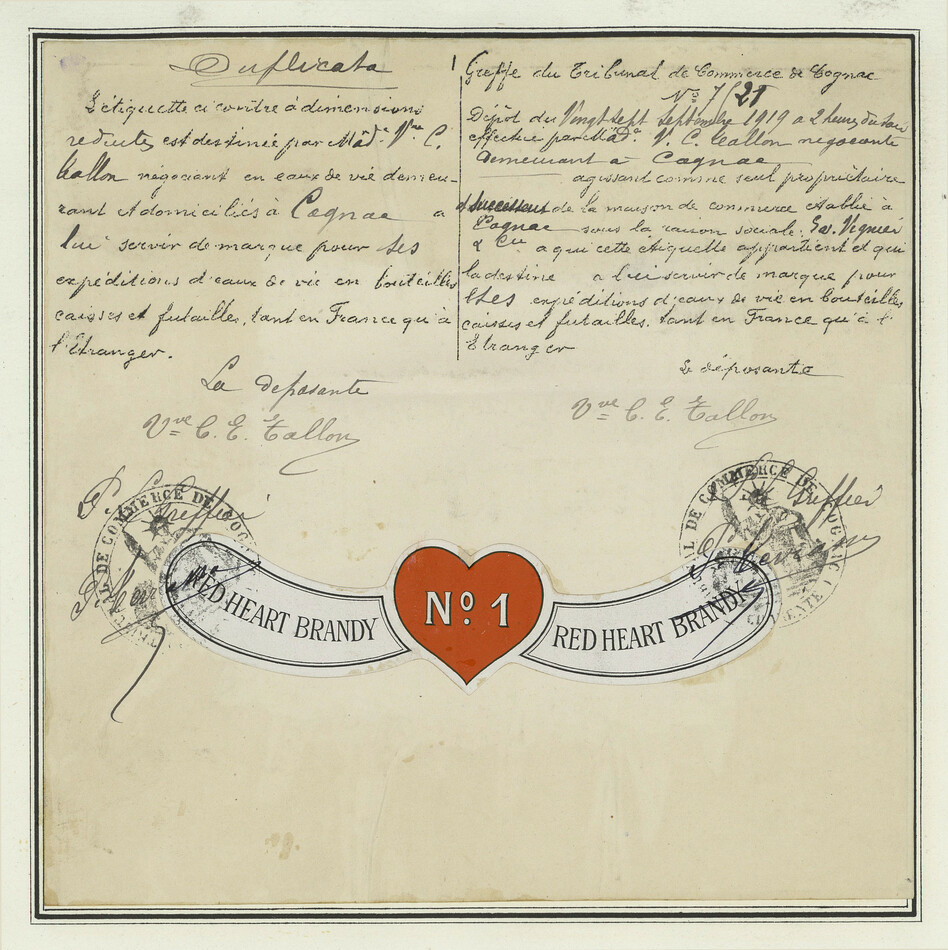 Duplicata
L'étiquette ci contre à dimensions
reduites est destinée par Mad.e Vve C.
Tallon négociant en eaux de vie demeu-
rant et domiciliés à Cognac a
lui servir de marque pour ses
expéditions d'eaux de vie en bouteilles
caisses et futailles, tant en France qu'à
l'Etranger.
La deposante
Vve C. E. Tallon
P. Le Greffier
Greffe du Tribunal de Commerce de Cognac
No 7/21
Dépôt du Vingt sept Septembre 1919 a 2 heures du soir
effectué par Made V. C. Tallon négociante
demeurant à Cognac
agissant comme seul propriétaire
et successeurs de la maison de commerce établie à
Cognac sous la raison sociale: Gas. Vignier
& Cie a qui cette étiquette appartient et qui
la destine a lui servir de marque pour
ses expéditions d'eaux de vie en bouteilles,
caisses et futailles, tant en France qu'à l'
Etranger
Le déposante
Vve C. E. Tallon
P. Le Greffier
COMMERCE DE COGNAC
RED HEART BRANDY
No 1
RED HEART BRANDY
AL DE COMMERCE DE COGNAC